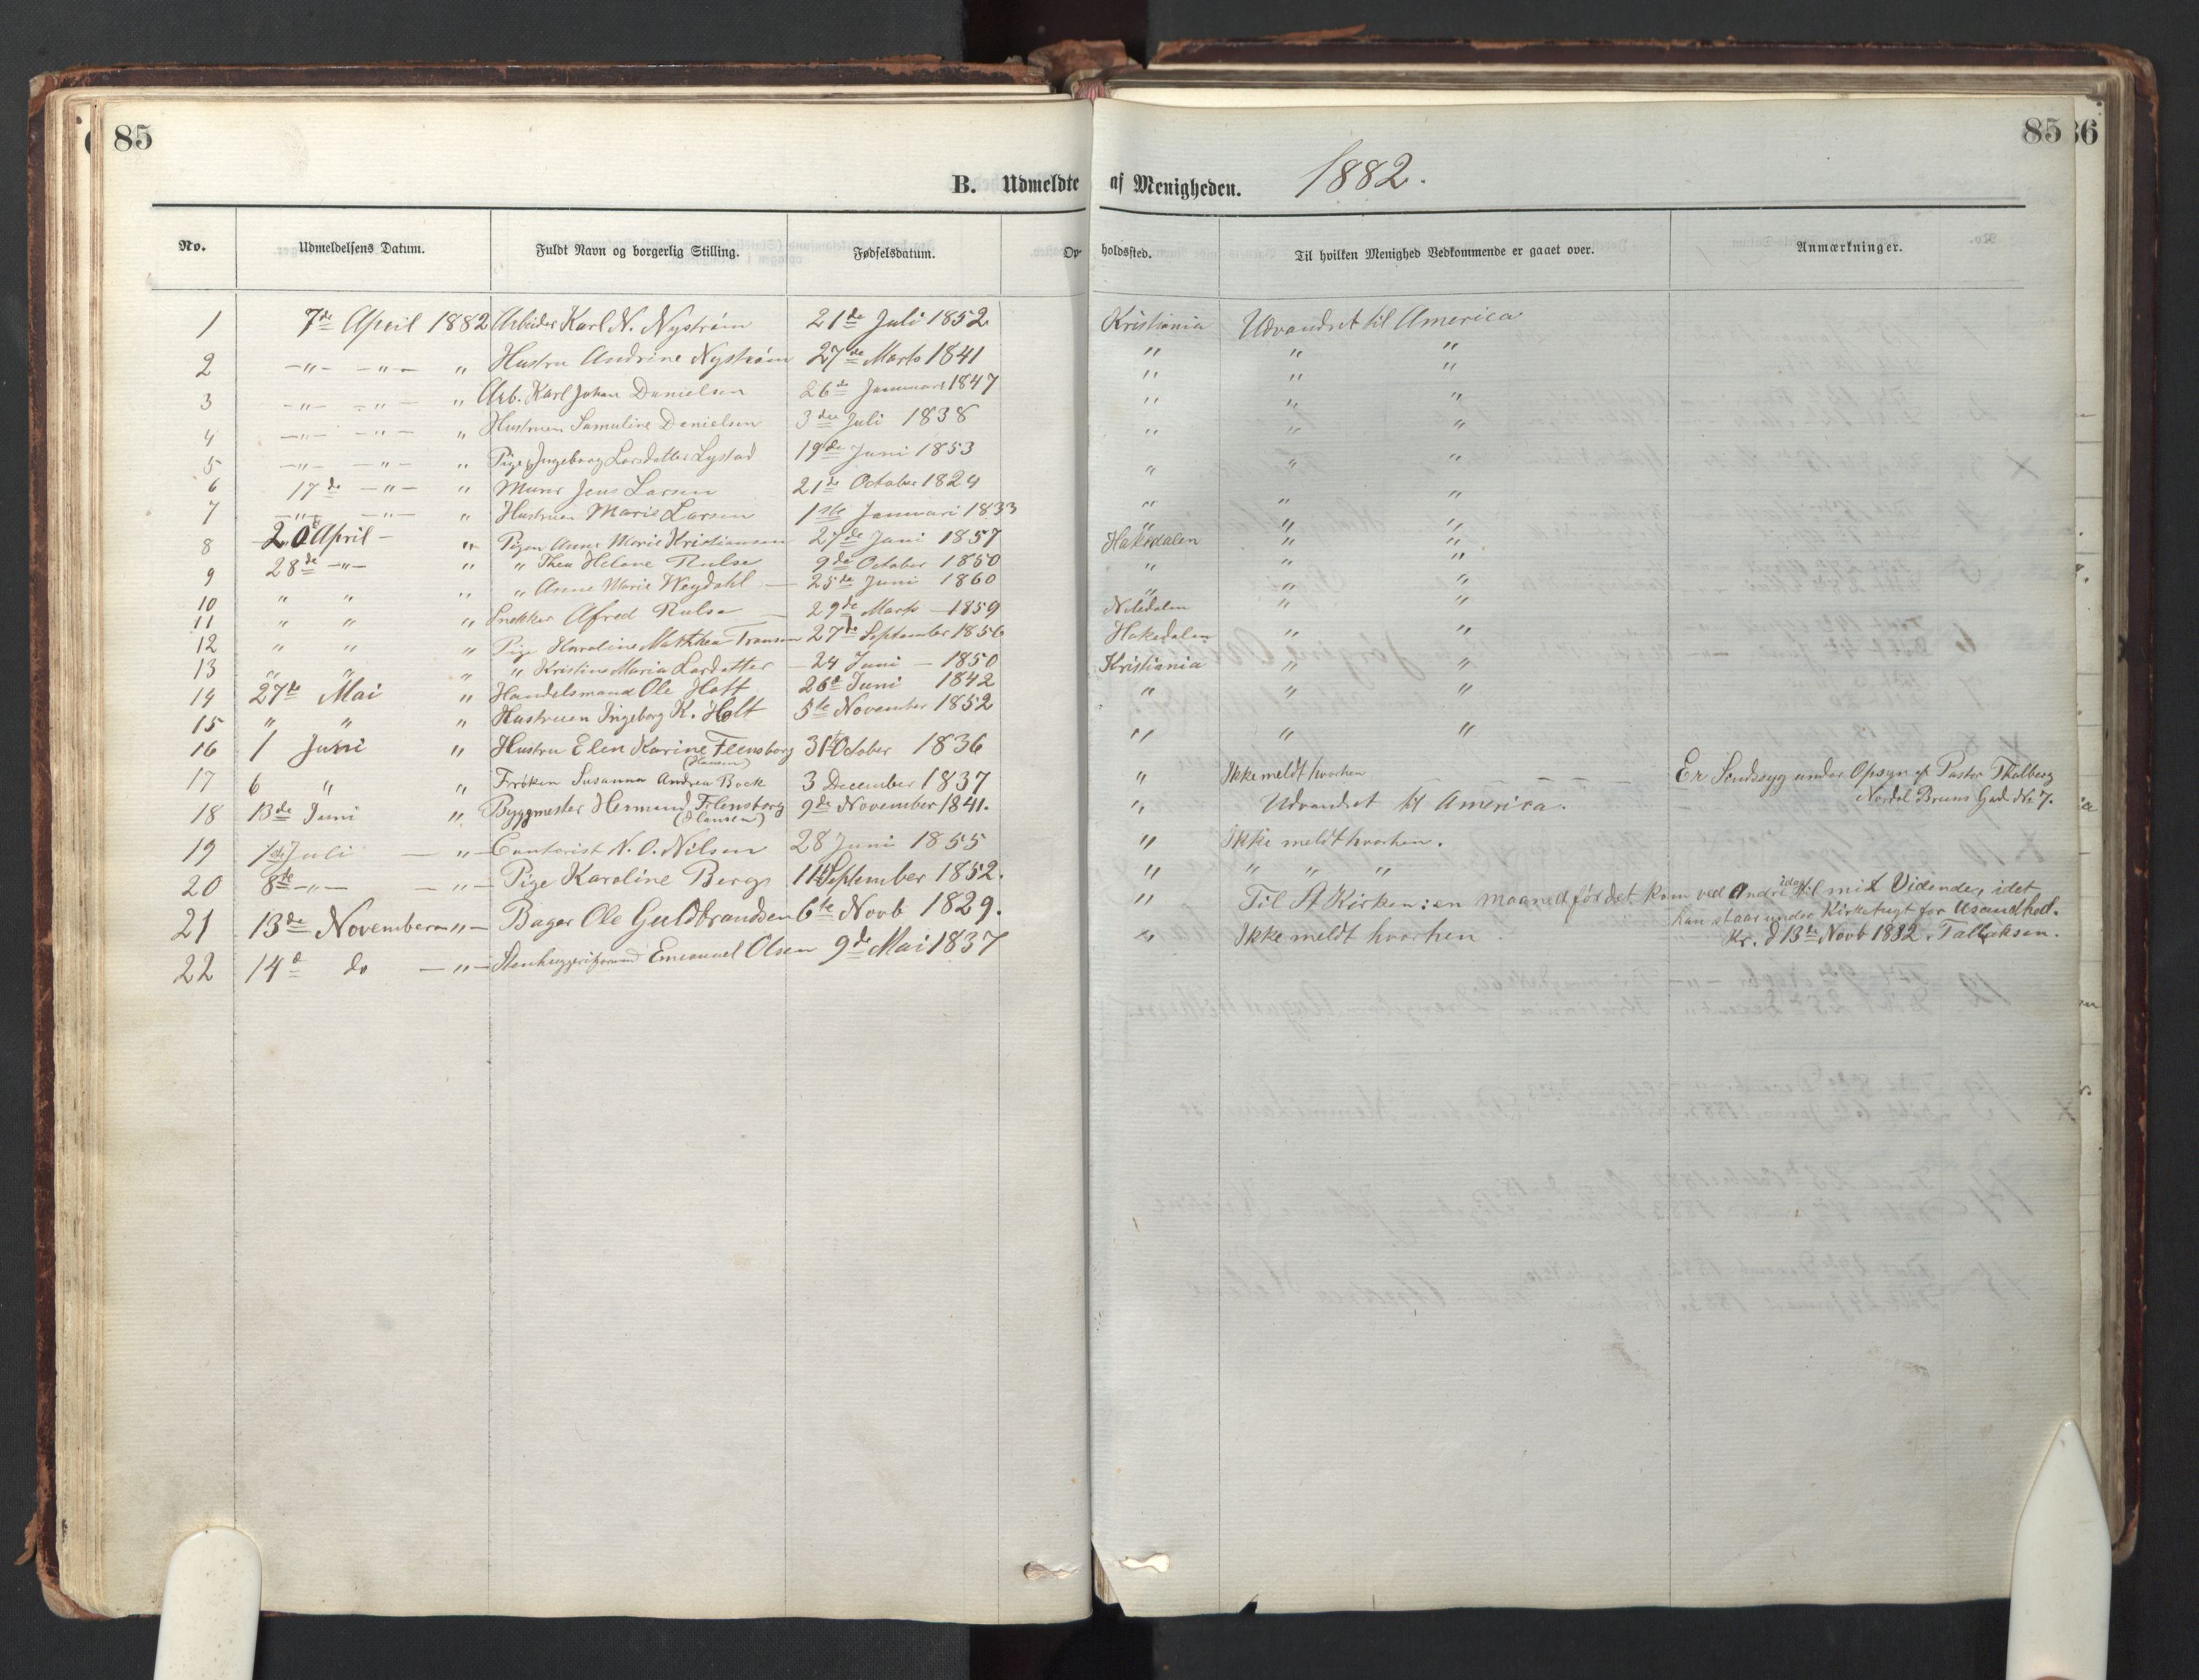 85
85
86
B. Udmeldte af Menigheden. 1882.
No. Udmeldelsens Datum. Fuldt Navn og borgerlig Stilling. Fødselsdatum. Opholdssted. Til hvilken Menighed Vedkommende er gaaet over. Anmærkninger.
1 7de April 1882 Arbeider Karl N. Nystrøm 21de Juli 1852 Kristiania Udvandret til America
2 –"– –"– " Hustru Andrine Nystrøm 27de Marts 1841 " " "
3 –"– –"– " Arb. Karl Johan Danielsen 26de Januari 1847 " " "
4 –"– –"– " Hustruen Samuline Danielsen 3die Juli 1838 " " "
5 –"– –"– " Pige Ingeborg Larsdatter Lystad 19de Juni 1853 " " "
6 17de –"– " Murer Jens Larsen 21de October 1824 " " "
7 –"– –"– " Hustruen Marie Larsen 1ste Januari 1833 " " "
8 20 April – " Pigen Anne Marie Kristiansen 27de Juni 1857 Hakedalen " "
9 28de –"– " " Thea Helene Rulse 9de October 1850 " " "
10 " " " " Anne Marie Weydahl – 25de Juni 1860 " " "
11 " " " Snekker Afred Rulse – 29de Marts – 1859 Nitedalen " "
12 " " " Pige Karoline Mathea Fransen 27de September 1856 Hakedalen " "
13 " " " " Kristine Maria Larsdatter – 24 Juni – 1850 Kristiania " "
14 27de Mai " Handelsmand Ole Holt 26de Juni 1842 " " "
15 " " " Hustruen Ingeborg K. Holt 5te November 1852 " " "
16 1 Juni " Hustru Elen Karine Flensborg (Hansen) 31te October 1836 " " "
17 6 " " Frøken Susanna Andrea Bock 3 December 1837 " Ikke meldt hvorhen – – – – – Er Sindssyg under Opsyn af Pastor Thalberg
Nordal Bruns Gade No 7.
18 13de Juni " Byggmester Hermand Flensborg (Hansen) 9de November 1841. " Udvandret til America.
19 1ste Juli – " – Contorist N. O. Nilsen 28 Juni 1855 " Ikke meldt hvorhen.
20 8de –"– – " – Pige Karoline Bergs 11te September 1852. " " " "
21 13de November – " – Bager Ole Guldbrandsen 6te Novb 1829. " Til St Kirken: en maaned før det kom ved Andre idag til mit Vidende, idet
han staar under Kirketugt for Usandhed.
Kr. d 13de Novb 1882. Tallaksen.
22 14d do – " – Stenhuggeriformand Emanuel Olsen 9de Mai 1837 " Ikke meldt hvorhen.